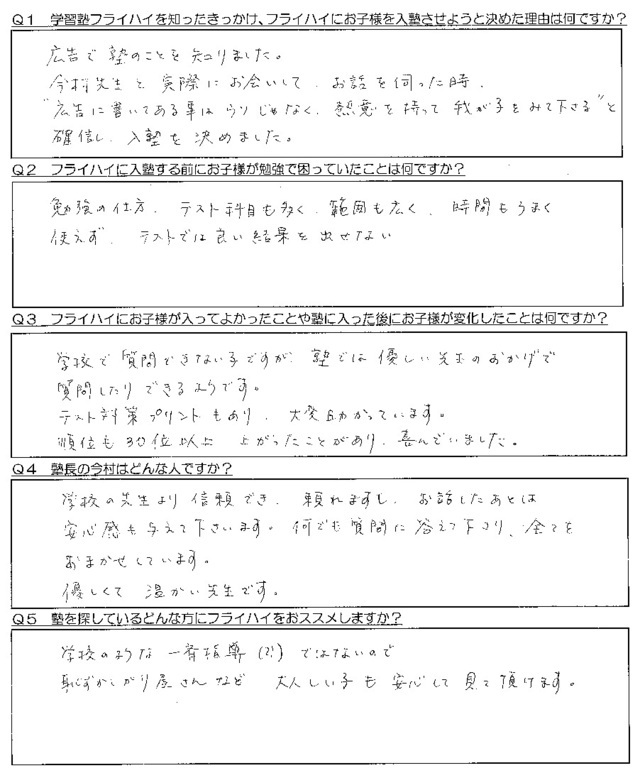 Q1 学習塾フライハイを知ったきっかけ、フライハイにお子様を入塾させようと決めた理由は何ですか?
広告で塾のことを知りました。
今村先生と実際にお会いして、お話を伺った時、
"広告に書いてある事はウソじゃなく、熱意を持って我が子をみて下さる"と
確信し、入塾を決めました。
Q2 フライハイに入塾する前にお子様が勉強で困っていたことは何ですか?
勉強の仕方、テスト科目も多く、範囲も広く、時間もうまく
使えず、テストでは良い結果を出せない
Q3 フライハイにお子様が入ってよかったことや塾に入った後にお子様が変化したことは何ですか?
学校で質問できない子ですが、塾では優しい先生のおかげで
質問したりできるようです。
テスト対策プリントもあり、大変助かっています。
順位も30位以上上がったことがあり、喜んでいました。
Q4 塾長の今村はどんな人ですか?
学校の先生より信頼でき、頼れますし、お話したあとは
安心感も与えて下さいます。何でも質問に答えて下さり、全てを
おまかせしています。
優しくて温かい先生です。
Q5 塾を探しているどんな方にフライハイをおススメしますか?
学校のような一斉指導(?)ではないので
恥ずかしがり屋さんなど大人しい子も安心して見て頂けます。